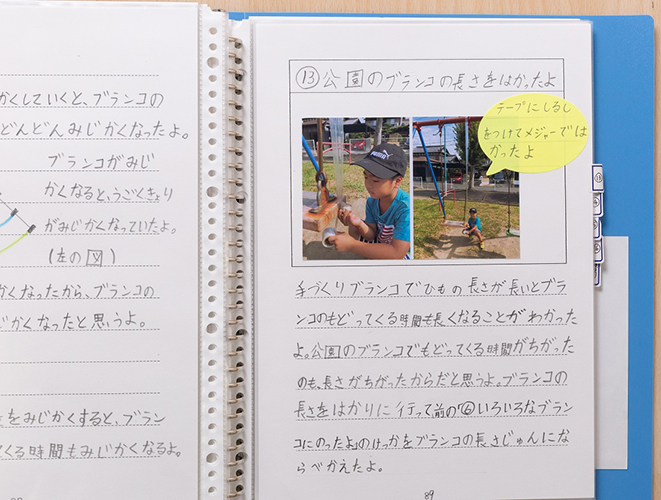 かくしていくと、ブランコの
どんどんみじかくなったよ。
ブランコがみじ
かくなると、うごくきょり
がみじかくなっていたよ。
(左の図)
くなったから、ブランコの
じかくなったと思うよ。
をみじかくすると、ブラン
てくる時間もみじかくなるよ。
⑬公園のブランコの長さをはかったよ
テープにしるし
をつけてメジャーでは
かったよ
手づくりブランコでひもの長さが長いとブラ
ンコのもどってくる時間も長くなることがわかった
よ。公園のブランコでもどってくる時間がちがった
のも、長さがちがったからだと思うよ。ブランコの
長さをはかりに行って前の「⑥いろいろなブラン
コにのったよ」のけっかをブランコの長さじゅんにな
らべかえたよ。
89
⑬